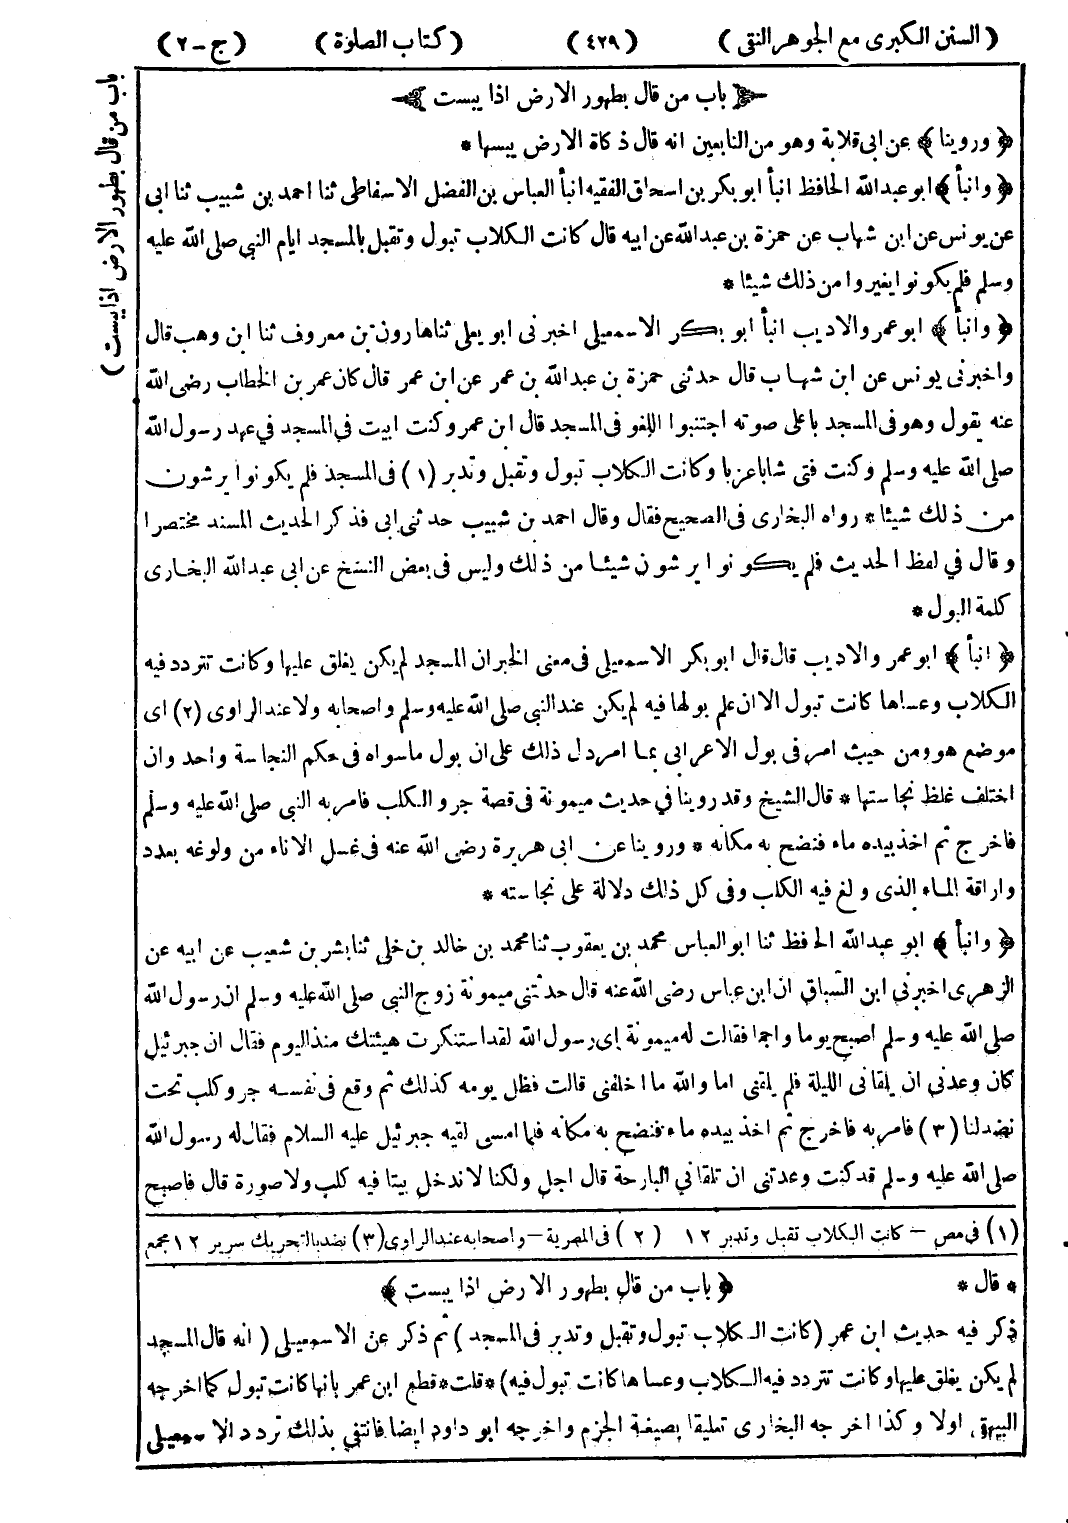 ( السنن الكبرى مع الجوهر النقى ) ( ٤٢٩ ) ( كتاب الصلوة ) ( ج - ٢ )
باب من قال بطهور الارض اذا يبست )
باب من قال بطهور الارض اذا يبست
﴿ وروينا ﴾ عن ابى قلابة وهو من التابعين انه قال ذكاة الارض يبسها *
﴿ وانبأ ﴾ ابو عبد الله الحافظ انبأ ابو بكر بن اسحاق الفقيه انبأ العباس بن الفضل الاسفاطى ثنا احمد بن شبيب ثنا ابى
عن يونس عن ابن شهاب عن حمزة بن عبد الله عن ابيه قال كانت الكلاب تبول وتقبل بالمسجد ايام النبى صلى الله عليه
وسلم فلم يكونوا يغيروا من ذلك شيئا *
﴿ وانبأ ﴾ ابو عمرو الاديب انبأ ابو بكر الاسمعيلى اخبرنى ابو يعلى ثنا هارون بن معروف ثنا ابن وهب قال
واخبرنى يونس عن ابن شهاب قال حدثنى حمزة بن عبد الله بن عمر عن ابن عمر قال كان عمر بن الخطاب رضى الله
عنه يقول وهو فى المسجد باعلى صوته اجتنبوا اللغو فى المسجد قال ابن عمر وكنت ابيت في المسجد في عهد رسول الله
صلى الله عليه وسلم وكنت فتى شابا عزبا وكانت الكلاب تبول وتقبل وتدبر (١) فى المسجد فلم يكونوا يرشون
من ذلك شيئا * رواه البخارى فى الصحيح فقال وقال احمد بن شبيب حدثنى ابى فذكر الحديث المسند مختصرا
وقال في لفظ الحديث فلم يكونوا يرشون شيئا من ذلك وليس فى بعض النسخ عن ابى عبد الله البخارى
كلمة البول *
﴿ انبأ ﴾ ابو عمرو الاديب قال قال ابو بكر الاسمعيلى فى معنى الخبر ان المسجد لم يكن يغلق عليها وكانت تتردد فيه
الكلاب وعساها كانت تبول الا ان علم بولها فيه لم يكن عند النبى صلى الله عليه وسلم واصحابه ولا عند الراوى (٢) اى
موضع هو ومن حيث امر فى بول الاعرابى بما امر دل ذلك على ان بول ماسواه فى حكم النجاسة واحد وان
اختلف غلظ نجاستها * قال الشيخ وقد روينا في حديث ميمونة فى قصة جرو الكلب فامر به النبى صلى الله عليه وسلم
فاخرج ثم اخذ بيده ماء فنضح به مكانه * وروينا عن ابى هريرة رضى الله عنه فى غسل الاناء من ولوغه بعدد
واراقة الماء الذى ولغ فيه الكلب وفى كل ذلك دلالة على نجاسته *
﴿ وانبأ ﴾ ابو عبد الله الحافظ ثنا ابو العباس محمد بن يعقوب ثنا محمد بن خالد بن خلى ثنا بشر بن شعيب عن ابيه عن
الزهرى اخبرنى ابن السباق ان ابن عباس رضى الله عنه قال حدثتنى ميمونة زوج النبى صلى الله عليه وسلم ان رسول الله
صلى الله عليه وسلم اصبح يوما واجما فقالت له ميمونة اى رسول الله لقد استنكرت هيئتك منذ اليوم فقال ان جبرئيل
كان وعدنى ان يلقانى الليلة فلم يلقنى اما والله ما اخلفنى قالت فظل يومه كذلك ثم وقع فى نفسه جرو كلب تحت
نضد لنا (٣) فامر به فاخرج ثم اخذ بيده ماء فنضح به مكانه فلما امسى لقيه جبرئيل عليه السلام فقال له رسول الله
صلى الله عليه وسلم قد كنت وعدتنى ان تلقانى البارحة قال اجل ولكنا لا ندخل بيتا فيه كلب ولا صورة قال فاصبح
(١) فى مص - كانت الكلاب تقبل وتدبر ١٢ (٢) فى المصرية - واصحابه عند الراوى (٣) نضد بالتحريك سرير ١٢ مجمع
* قال * ﴿ باب من قال بطهور الارض اذا يبست ﴾
ذكر فيه حديث ابن عمر ( كانت الكلاب تبول وتقبل وتدبر فى المسجد ) ثم ذكر عن الاسمعيلى ( انه قال المسجد
لم يكن يغلق عليها وكانت تتردد فيه الكلاب وعساها كانت تبول فيه ) * قلت * قطع ابن عمر بانها كانت تبول كما اخرجه
البيهقى اولا وكذا اخرجه البخارى تعليقا بصيغة الجزم واخرجه ابو داود ايضا فانتفى بذلك تردد الاسمعيلى